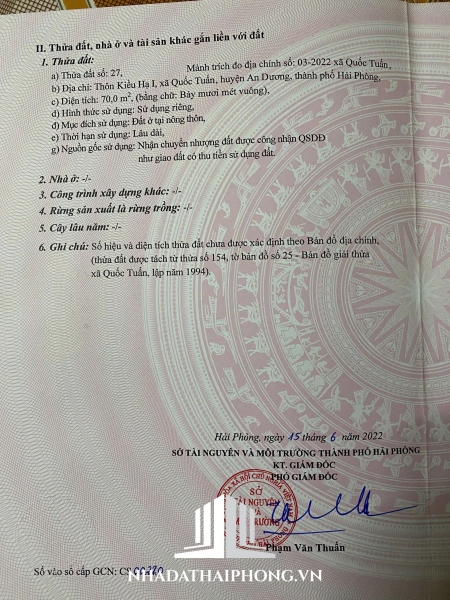 II. Thửa đất, nhà ở và tài sản khác gắn liền với đất
1. Thửa đất:
a) Thửa đất số: 27, Mảnh trích đo địa chính số: 03-2022 xã Quốc Tuấn,
b) Địa chỉ: Thôn Kiều Hạ I, xã Quốc Tuấn, huyện An Dương, thành phố Hải Phòng,
c) Diện tích: 70,0 m², (bằng chữ: Bảy mươi mét vuông),
d) Hình thức sử dụng: Sử dụng riêng,
đ) Mục đích sử dụng: Đất ở tại nông thôn,
e) Thời hạn sử dụng: Lâu dài,
g) Nguồn gốc sử dụng: Nhận chuyển nhượng đất được công nhận QSDĐ
như giao đất có thu tiền sử dụng đất.
2. Nhà ở: -/-
3. Công trình xây dựng khác: -/-
4. Rừng sản xuất là rừng trồng: -/-
5. Cây lâu năm: -/-
6. Ghi chú: Số hiệu và diện tích thửa đất chưa được xác định theo Bản đồ địa chính,
(thửa đất được tách từ thửa số 154, tờ bản đồ số 25 - Bản đồ giải thửa
xã Quốc Tuấn, lập năm 1994).
Hải Phòng, ngày 15 tháng 6 năm 2022
SỞ TÀI NGUYÊN VÀ MÔI TRƯỜNG THÀNH PHỐ HẢI PHÒNG
KT. GIÁM ĐỐC
PHÓ GIÁM ĐỐC
SỞ
TÀI NGUYÊN
VÀ
TRƯỜNG
Phạm Văn Thuấn
Số vào sổ cấp GCN: CS
NHADATHAIPHONG.VN